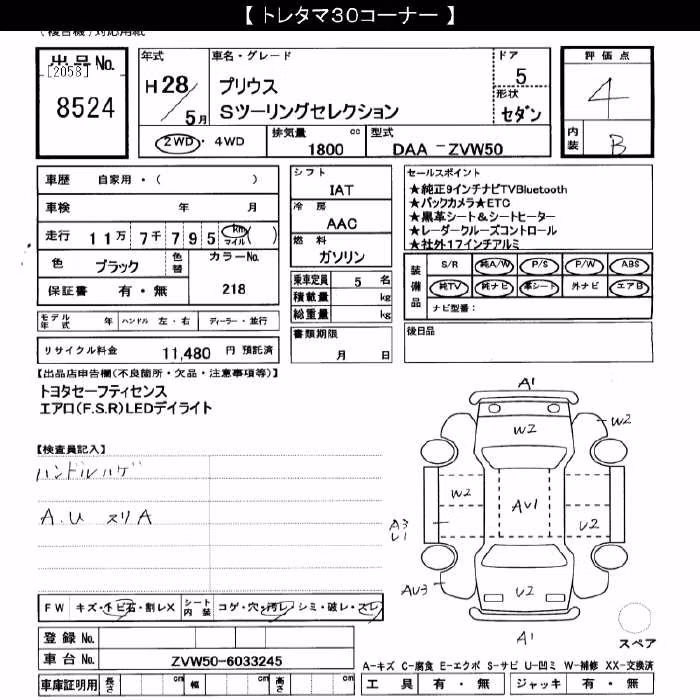 【 トレタマ30コーナー 】
(複合機)対応用紙
出品No.
[2058]
8524
年式
H28/5月
車名・グレード
プリウス
Sツーリングセレクション
ドア
5
形状
セダン
評価点
4
内装
B
2WD・4WD
排気量
1800 cc
型式
DAA -ZVW50
車歴 自家用・( )
車検 年 月
走行 11万7千795 km マイル ( )
色 ブラック
色替
カラーNo.
218
保証書 有・無
モデル年式 年 ハンドル 左・右 ディーラー・並行
リサイクル料金 11,480 円 預託済
シフト
IAT
冷房
AAC
燃料
ガソリン
乗車定員 5 名
積載量 kg
総重量 kg
書類期限
月 日
セールスポイント
★純正9インチナビTVBluetooth
★バックカメラ★ETC
★黒革シート&シートヒーター
★レーダークルーズコントロール
★社外17インチアルミ
装備品
S/R 純A/W P/S P/W ABS
純TV 純ナビ 革シート 外ナビ エアB
ナビ型番:
後日品
【出品店申告欄(不良箇所・欠品・注意事項等)】
トヨタセーフティセンス
エアロ(F.S.R)LEDデイライト
【検査員記入】
ハンドルハゲ
A.U スリA
A1
W2
W2
W2
AU1
U2
A3
U1
AU3
U2
A1
スペア
FW キズ・トビ石・割レX
シート内装 コゲ・穴・汚レ・シミ・破レ・スレ
登録No.
車台No. ZVW50-6033245
車庫証明用 長さ cm 幅 cm 高さ cm
A-キズ C-腐食 E-エクボ S-サビ U-凹ミ W-補修 XX-交換済
工具 有・無 ジャッキ 有・無